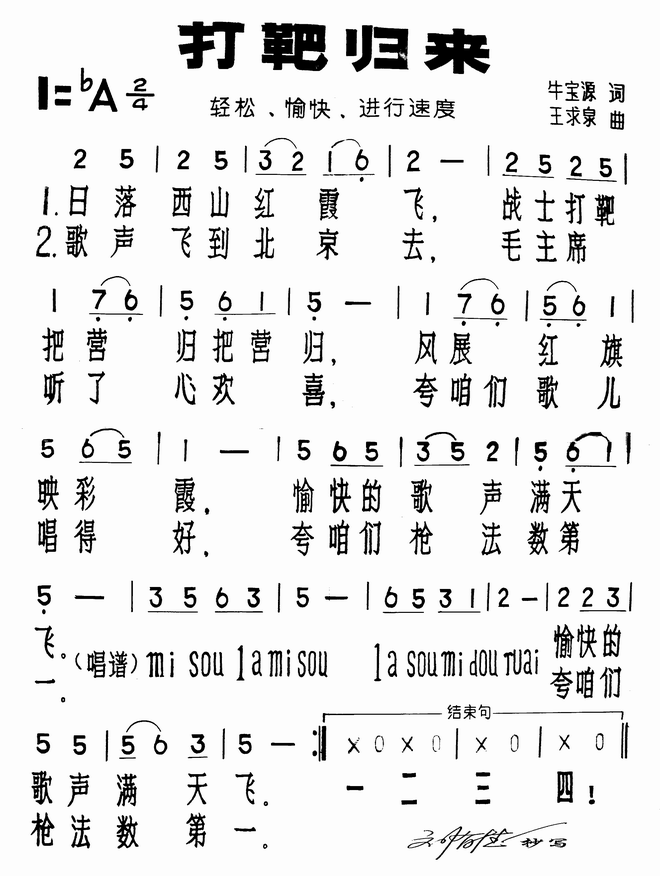 打靶归来
1=bA 2/4
轻松、愉快、进行速度
牛宝源 词
王求泉 曲
2 5 | 2 5 | 3 2 1 6 | 2 — | 2 5 2 5 |
1.日落西山红霞飞, 战士打靶
2.歌声飞到北京去, 毛主席
1 7 6 | 5 6 1 | 5 — | 1 7 6 | 5 6 1 |
把营归把营归, 风展红旗
听了心欢喜, 夸咱们歌儿
5 6 5 | 1 — | 5 6 5 | 3 5 2 | 5 6 1 |
映彩霞, 愉快的歌声满天
唱得好, 夸咱们枪法数第
5 — | 3 5 6 3 | 5 — | 6 5 3 1 | 2 — | 2 2 3 |
飞。(唱谱) mi sou la mi sou la sou mi dou ruai 愉快的
一。 夸咱们
结束句
5 5 | 5 6 3 | 5 — :‖ X 0 X 0 | X 0 | X 0 ‖
歌声满天飞。 一二三四!
枪法数第一。
抄写